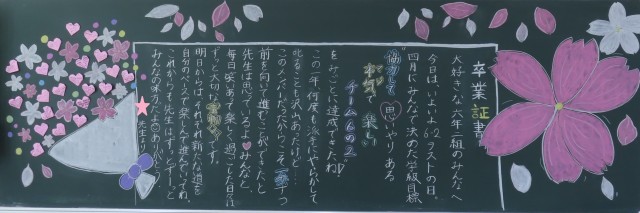 卒業証書
大好きな六年二組のみんなへ
今日は、いよいよ6-2ラストの日。
四月にみんなで決めた学級目標
"協力して 思いやりある
本気で楽しい
チーム6の2"
をみごとに達成できたね!
この一年、何度も派手にやらかして
叱ることも沢山あったけど…
このメンバーだったからこそ、一歩ずつ
前を向いて進むことができたと
先生は思っているよ♡みんなと
毎日笑い合って楽しく過ごした日々は
ずっと大切な宝物です。
明日からは、それぞれ新たな道を
自分のペースで楽しんで進んでいってね。
これからも先生は、ずーっとずーっと
みんなの味方だよ♡ありがとう!
先生より